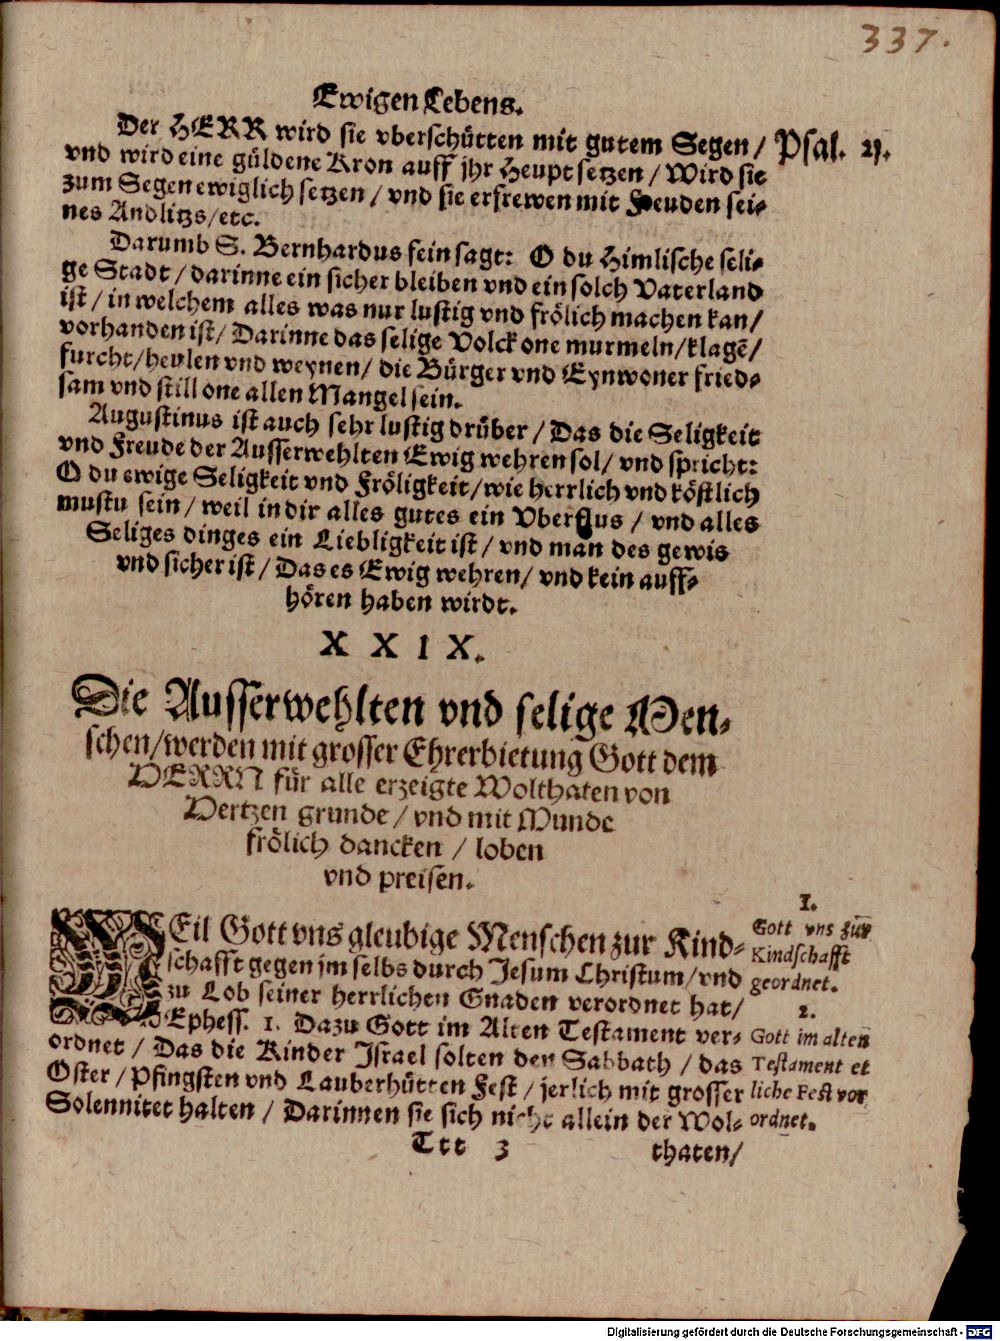 337.
Ewigen Lebens.
Der HERR wird sie vberschütten mit gutem Segen / Psal. 21.
vnd wird eine güldene Kron auff jhr Heupt setzen / Wird sie
zum Segen ewiglich setzen / vnd sie erfrewen mit Freuden sei⸗
nes Andlitzs / etc.
Darumb S. Bernhardus fein sagt: O du Himlische seli⸗
ge Stadt / darinne ein sicher bleiben vnd ein solch Vaterland
ist / in welchem alles was nur lustig vnd frölich machen kan /
vorhanden ist / Darinne das selige Volck one murmeln / klagē /
furcht / heulen vnd weynen / die Bürger vnd Eynwoner fried⸗
sam vnd still one allen Mangel sein.
Augustinus ist auch sehr lustig drüber / Das die Seligkeit
vnd Freude der Ausserwehlten Ewig wehren sol / vnd spricht:
O du ewige Seligkeit vnd Fröligkeit / wie herrlich vnd köstlich
mustu sein / weil in dir alles gutes ein Vberflus / vnd alles
Seliges dinges ein Liebligkeit ist / vnd man des gewis
vnd sicher ist / Das es Ewig wehren / vnd kein auff⸗
hören haben wirdt.
XXIX.
Die Ausserwehlten vnd selige Men⸗
schen / werden mit grosser Ehrerbietung Gott dem
HERRN für alle erzeigte Wolthaten von
Hertzen grunde / vnd mit Munde
frölich dancken / loben
vnd preisen.
WEil Gott vns gleubige Menschen zur Kind⸗
schafft gegen jm selbs durch Jesum Christum / vnd
zu Lob seiner herrlichen Gnaden verordnet hat /
Ephess. 1. Dazu Gott im Alten Testament ver⸗
ordnet / Das die Kinder Jsrael solten den Sabbath / das
Oster / Pfingsten vnd Lauberhütten Fest / jerlich mit grosser
Solennitet halten / Darinnen sie sich nicht allein der Wol⸗
1.
Gott vns zur
Kindschafft
geordnet.
2.
Gott im alten
Testament et
liche Fest vor
ordnet.
Ttt 3 thaten /
Digitalisierung gefördert durch die Deutsche Forschungsgemeinschaft - DFG